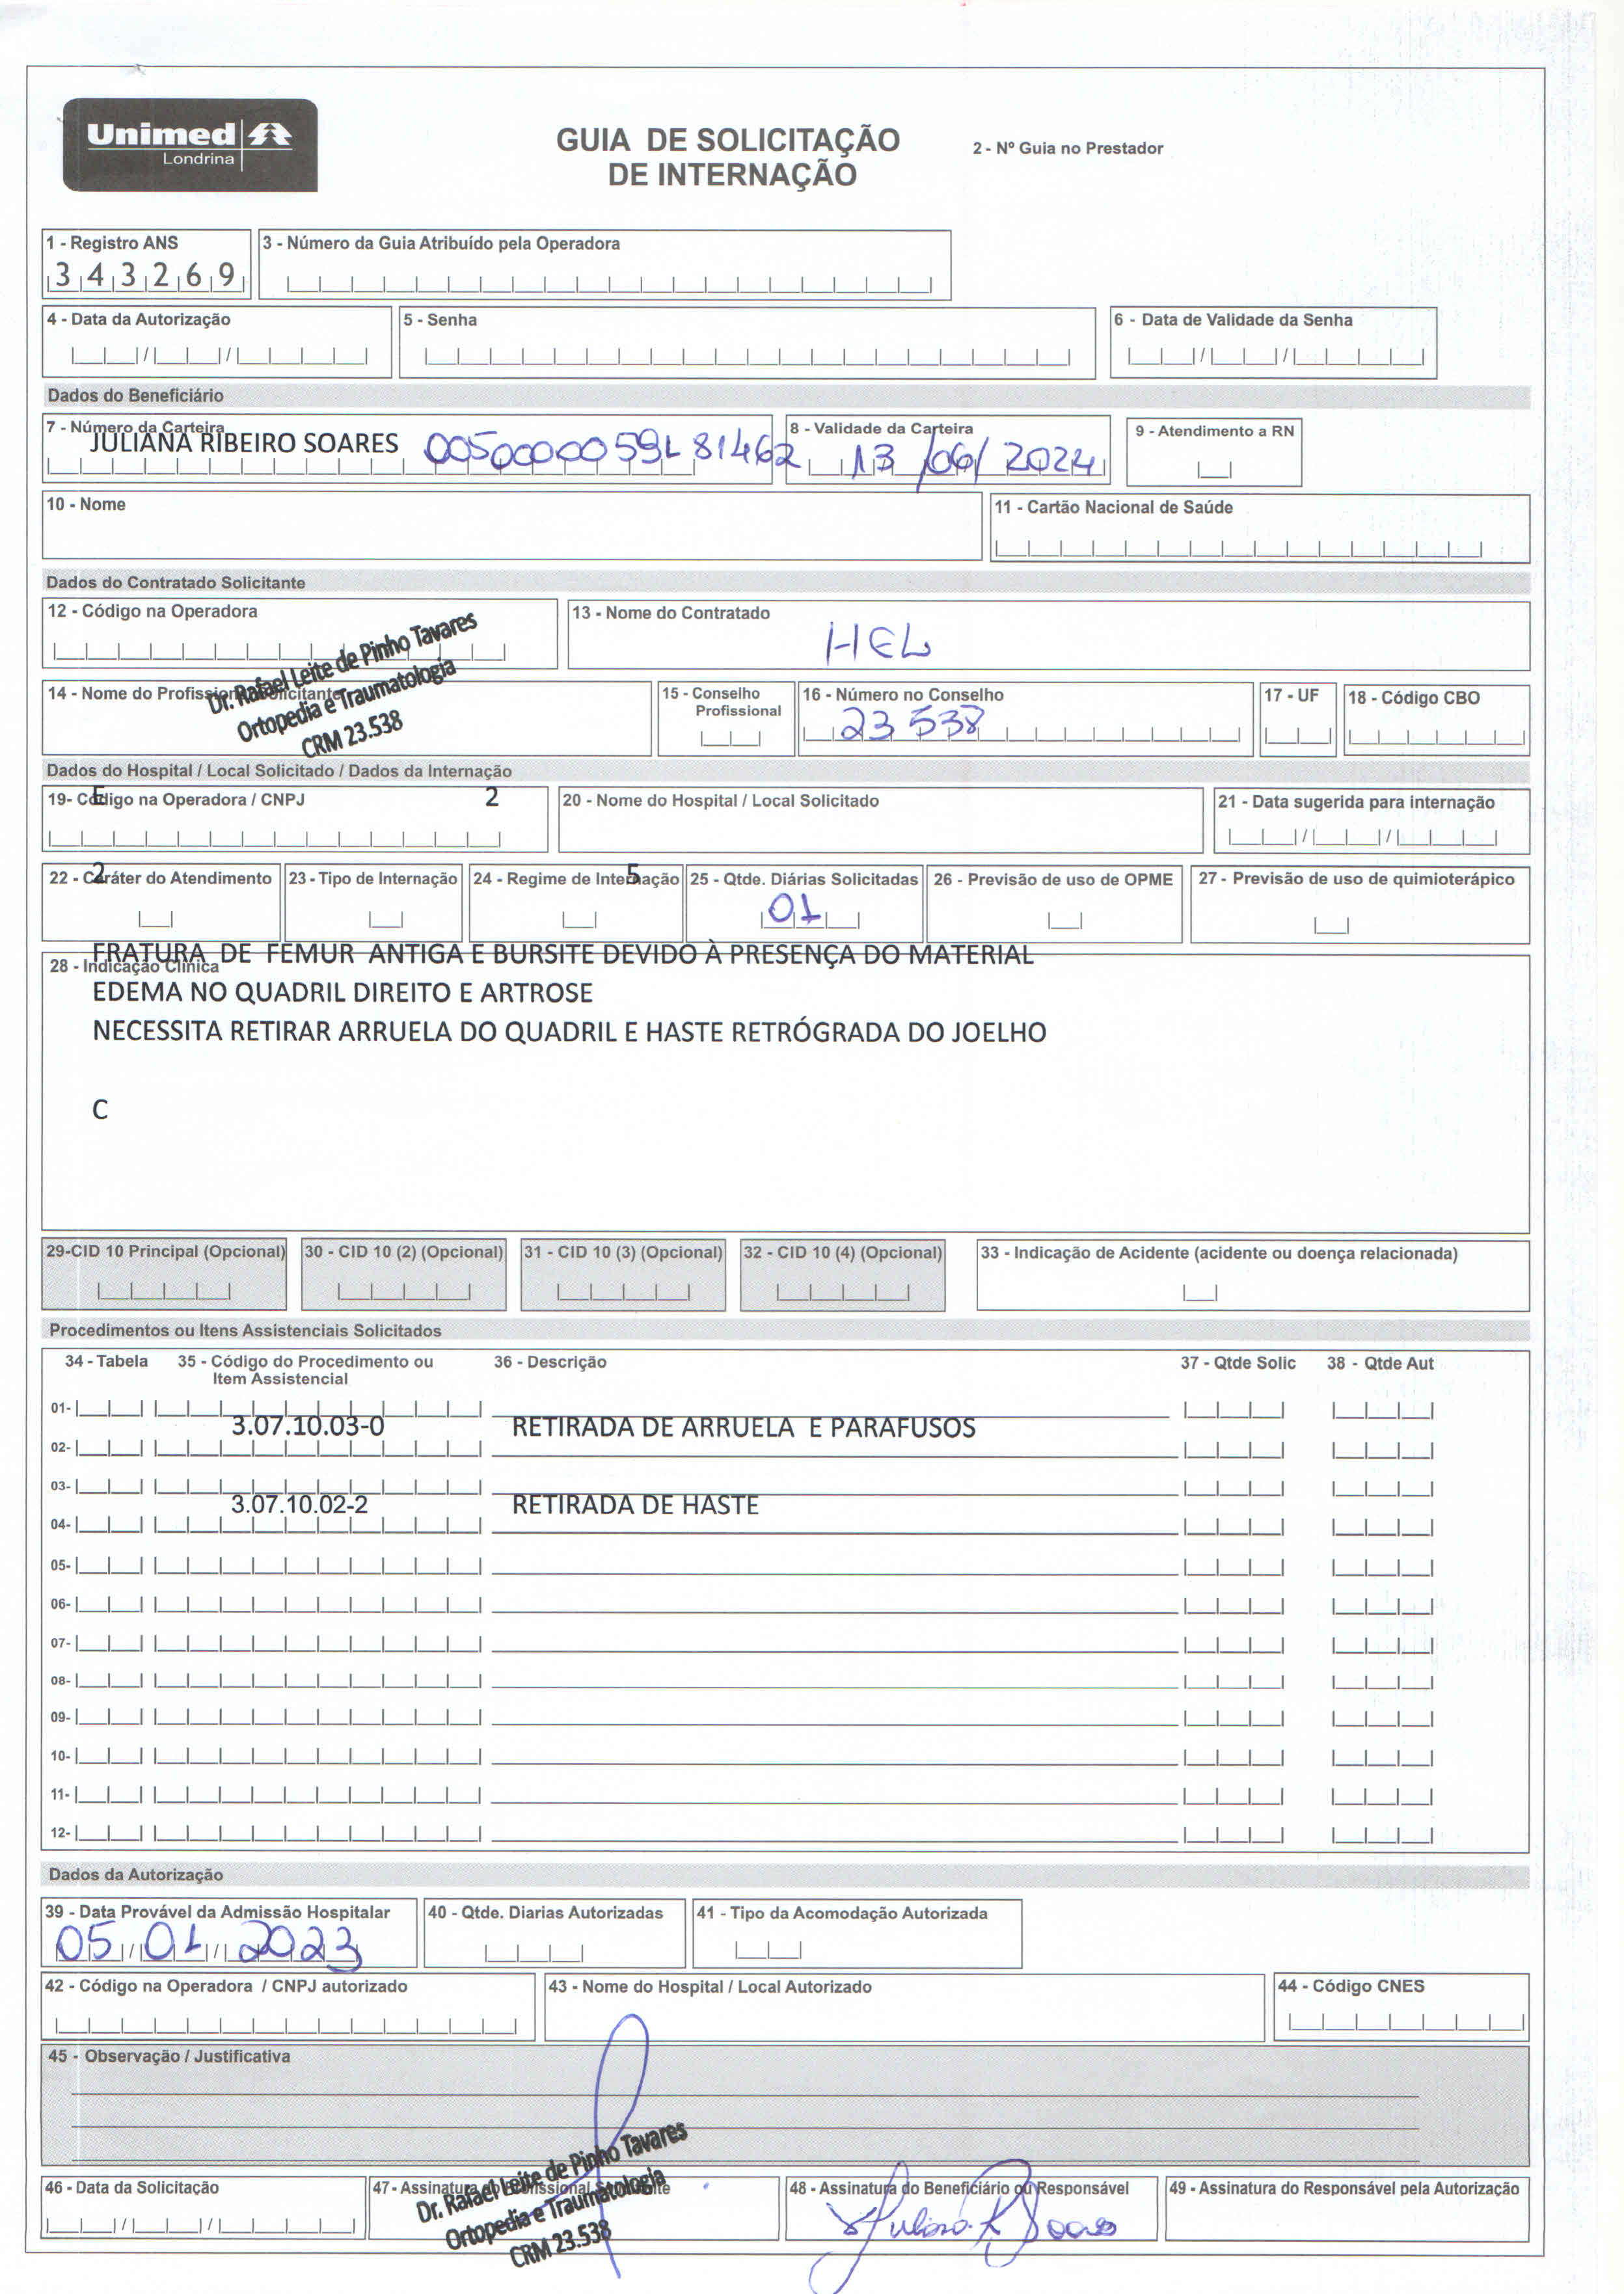 Unimed
Londrina
GUIA DE SOLICITAÇÃO
DE INTERNAÇÃO
2 - Nº Guia no Prestador
1 - Registro ANS
343269
3 - Número da Guia Atribuído pela Operadora
4 - Data da Autorização
5 - Senha
6 - Data de Validade da Senha
Dados do Beneficiário
7 - Número da Carteira
JULIANA RIBEIRO SOARES
8 - Validade da Carteira
13/06/2024
9 - Atendimento a RN
10 - Nome
11 - Cartão Nacional de Saúde
Dados do Contratado Solicitante
12 - Código na Operadora
13 - Nome do Contratado
HEL
Dr. Rafael Leite de Pinho Tavares
Ortopedia e Traumatologia
CRM 23.538
14 - Nome do Profissional Solicitante
15 - Conselho
Profissional
16 - Número no Conselho
23 538
17 - UF
18 - Código CBO
Dados do Hospital / Local Solicitado / Dados da Internação
19- Código na Operadora / CNPJ
E 2
20 - Nome do Hospital / Local Solicitado
21 - Data sugerida para internação
22 - Caráter do Atendimento
2
23 - Tipo de Internação
24 - Regime de Internação
5
25 - Qtde. Diárias Solicitadas
01
26 - Previsão de uso de OPME
27 - Previsão de uso de quimioterápico
28 - Indicação Clínica
FRATURA DE FEMUR ANTIGA E BURSITE DEVIDO À PRESENÇA DO MATERIAL
EDEMA NO QUADRIL DIREITO E ARTROSE
NECESSITA RETIRAR ARRUELA DO QUADRIL E HASTE RETRÓGRADA DO JOELHO
C
29-CID 10 Principal (Opcional)
30 - CID 10 (2) (Opcional)
31 - CID 10 (3) (Opcional)
32 - CID 10 (4) (Opcional)
33 - Indicação de Acidente (acidente ou doença relacionada)
Procedimentos ou Itens Assistenciais Solicitados
34 - Tabela
35 - Código do Procedimento ou
Item Assistencial
36 - Descrição
37 - Qtde Solic
38 - Qtde Aut
01-
3.07.10.03-0 RETIRADA DE ARRUELA E PARAFUSOS
02-
03-
3.07.10.02-2 RETIRADA DE HASTE
04-
05-
06-
07-
08-
09-
10-
11-
12-
Dados da Autorização
39 - Data Provável da Admissão Hospitalar
05/01/2023
40 - Qtde. Diarias Autorizadas
41 - Tipo da Acomodação Autorizada
42 - Código na Operadora / CNPJ autorizado
43 - Nome do Hospital / Local Autorizado
44 - Código CNES
45 - Observação / Justificativa
46 - Data da Solicitação
47 - Assinatura do Profissional Solicitante
Dr. Rafael Leite de Pinho Tavares
Ortopedia e Traumatologia
CRM 23.538
48 - Assinatura do Beneficiário ou Responsável
Juliana R Soares
49 - Assinatura do Responsável pela Autorização